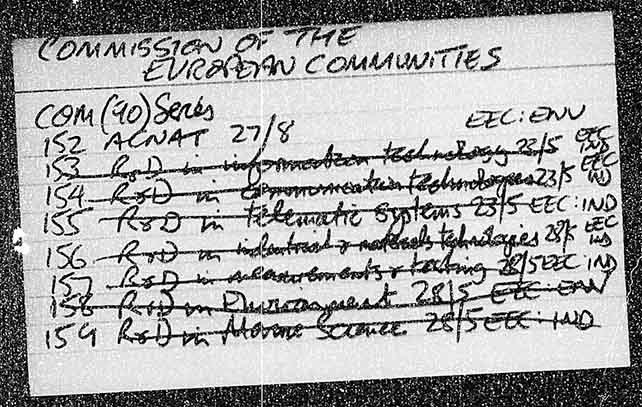 COMMISSION OF THE
EUROPEAN COMMUNITIES
COM (90) Series
152 ACNAT 27/8 EEC: ENV
153 R&D in information technology 23/5 EEC IND
154 R&D in communication technologies 23/5 EEC IND
155 R&D in telematic systems 23/5 EEC: IND
156 R&D in industrial & materials technologies 28/5 EEC IND
157 R&D in measurements & testing 28/5 EEC: IND
158 R&D in Environment 28/5 EEC: ENV
159 R&D in Marine Science 28/5 EEC: IND